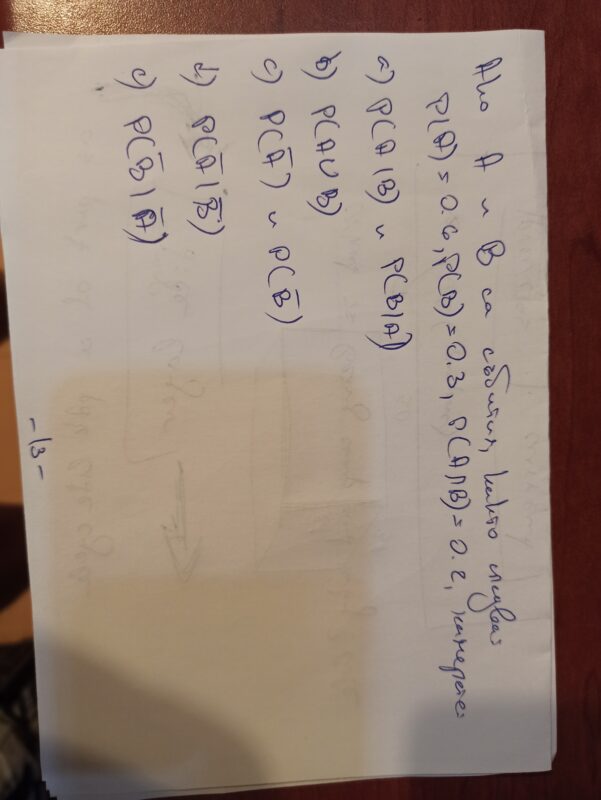 Ако A и B са събития, както следва:
P(A) = 0.6, P(B) = 0.3, P(A∩B) = 0.2, намерете:
a) P(A|B) и P(B|A)
b) P(A∪B)
c) P(A̅) и P(B̅)
d) P(A̅|B̅)
e) P(B̅|A̅)
-13-